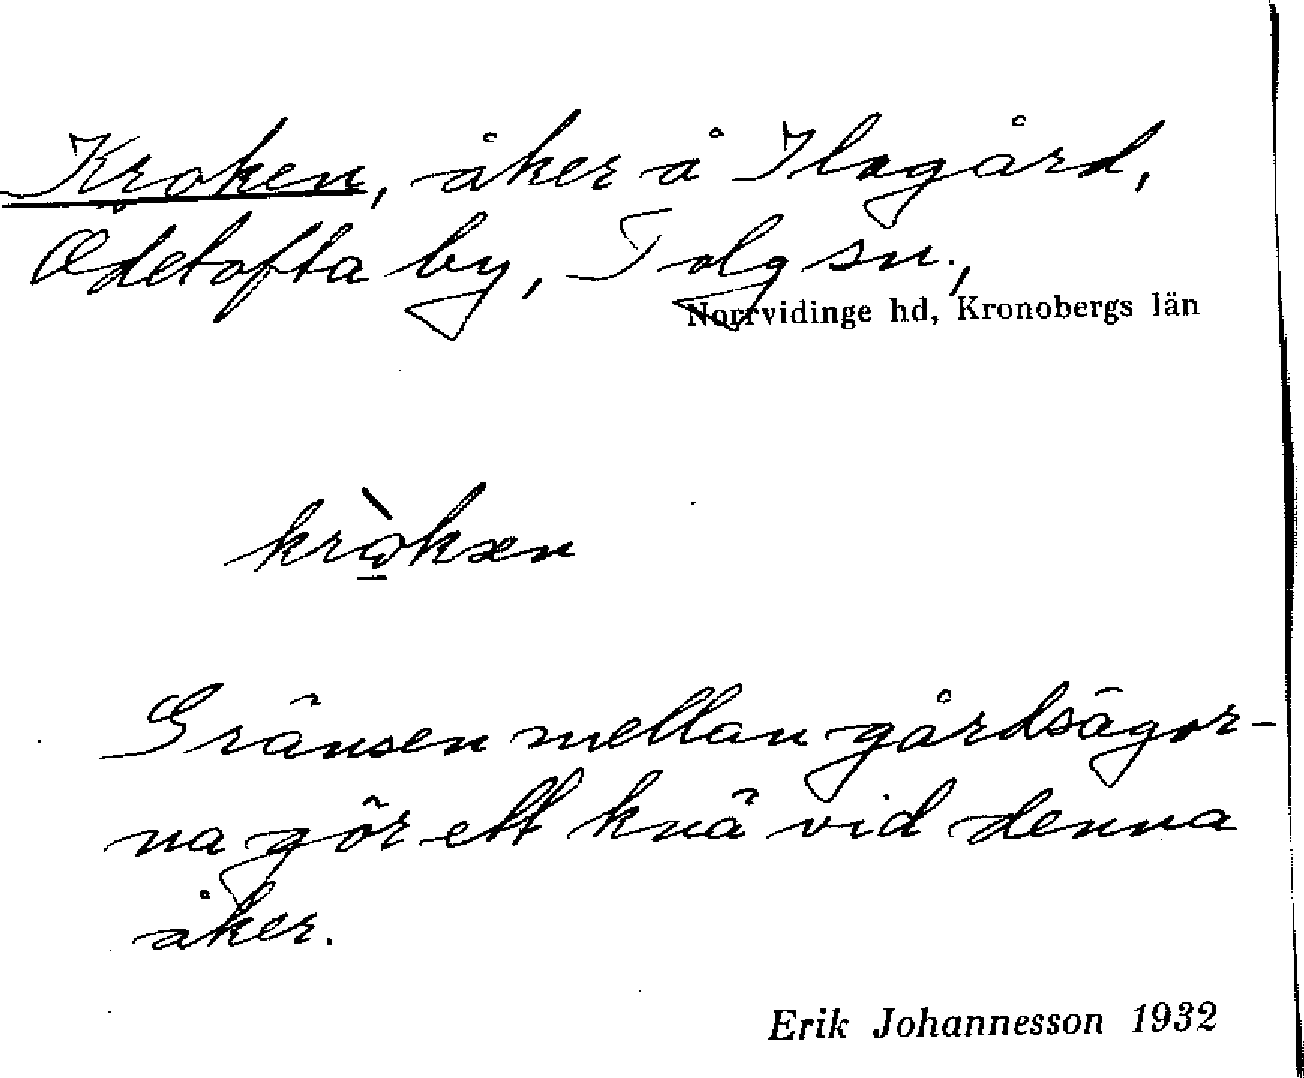 Kroken, åker å Ilagård,
Ödetofta by, Tolg sn.,
Norrvidinge hd, Kronobergs län
krò̱kæn
Gränsen mellan gårdsägor-
na gör ett knä vid denna
åker.
Erik Johannesson 1932